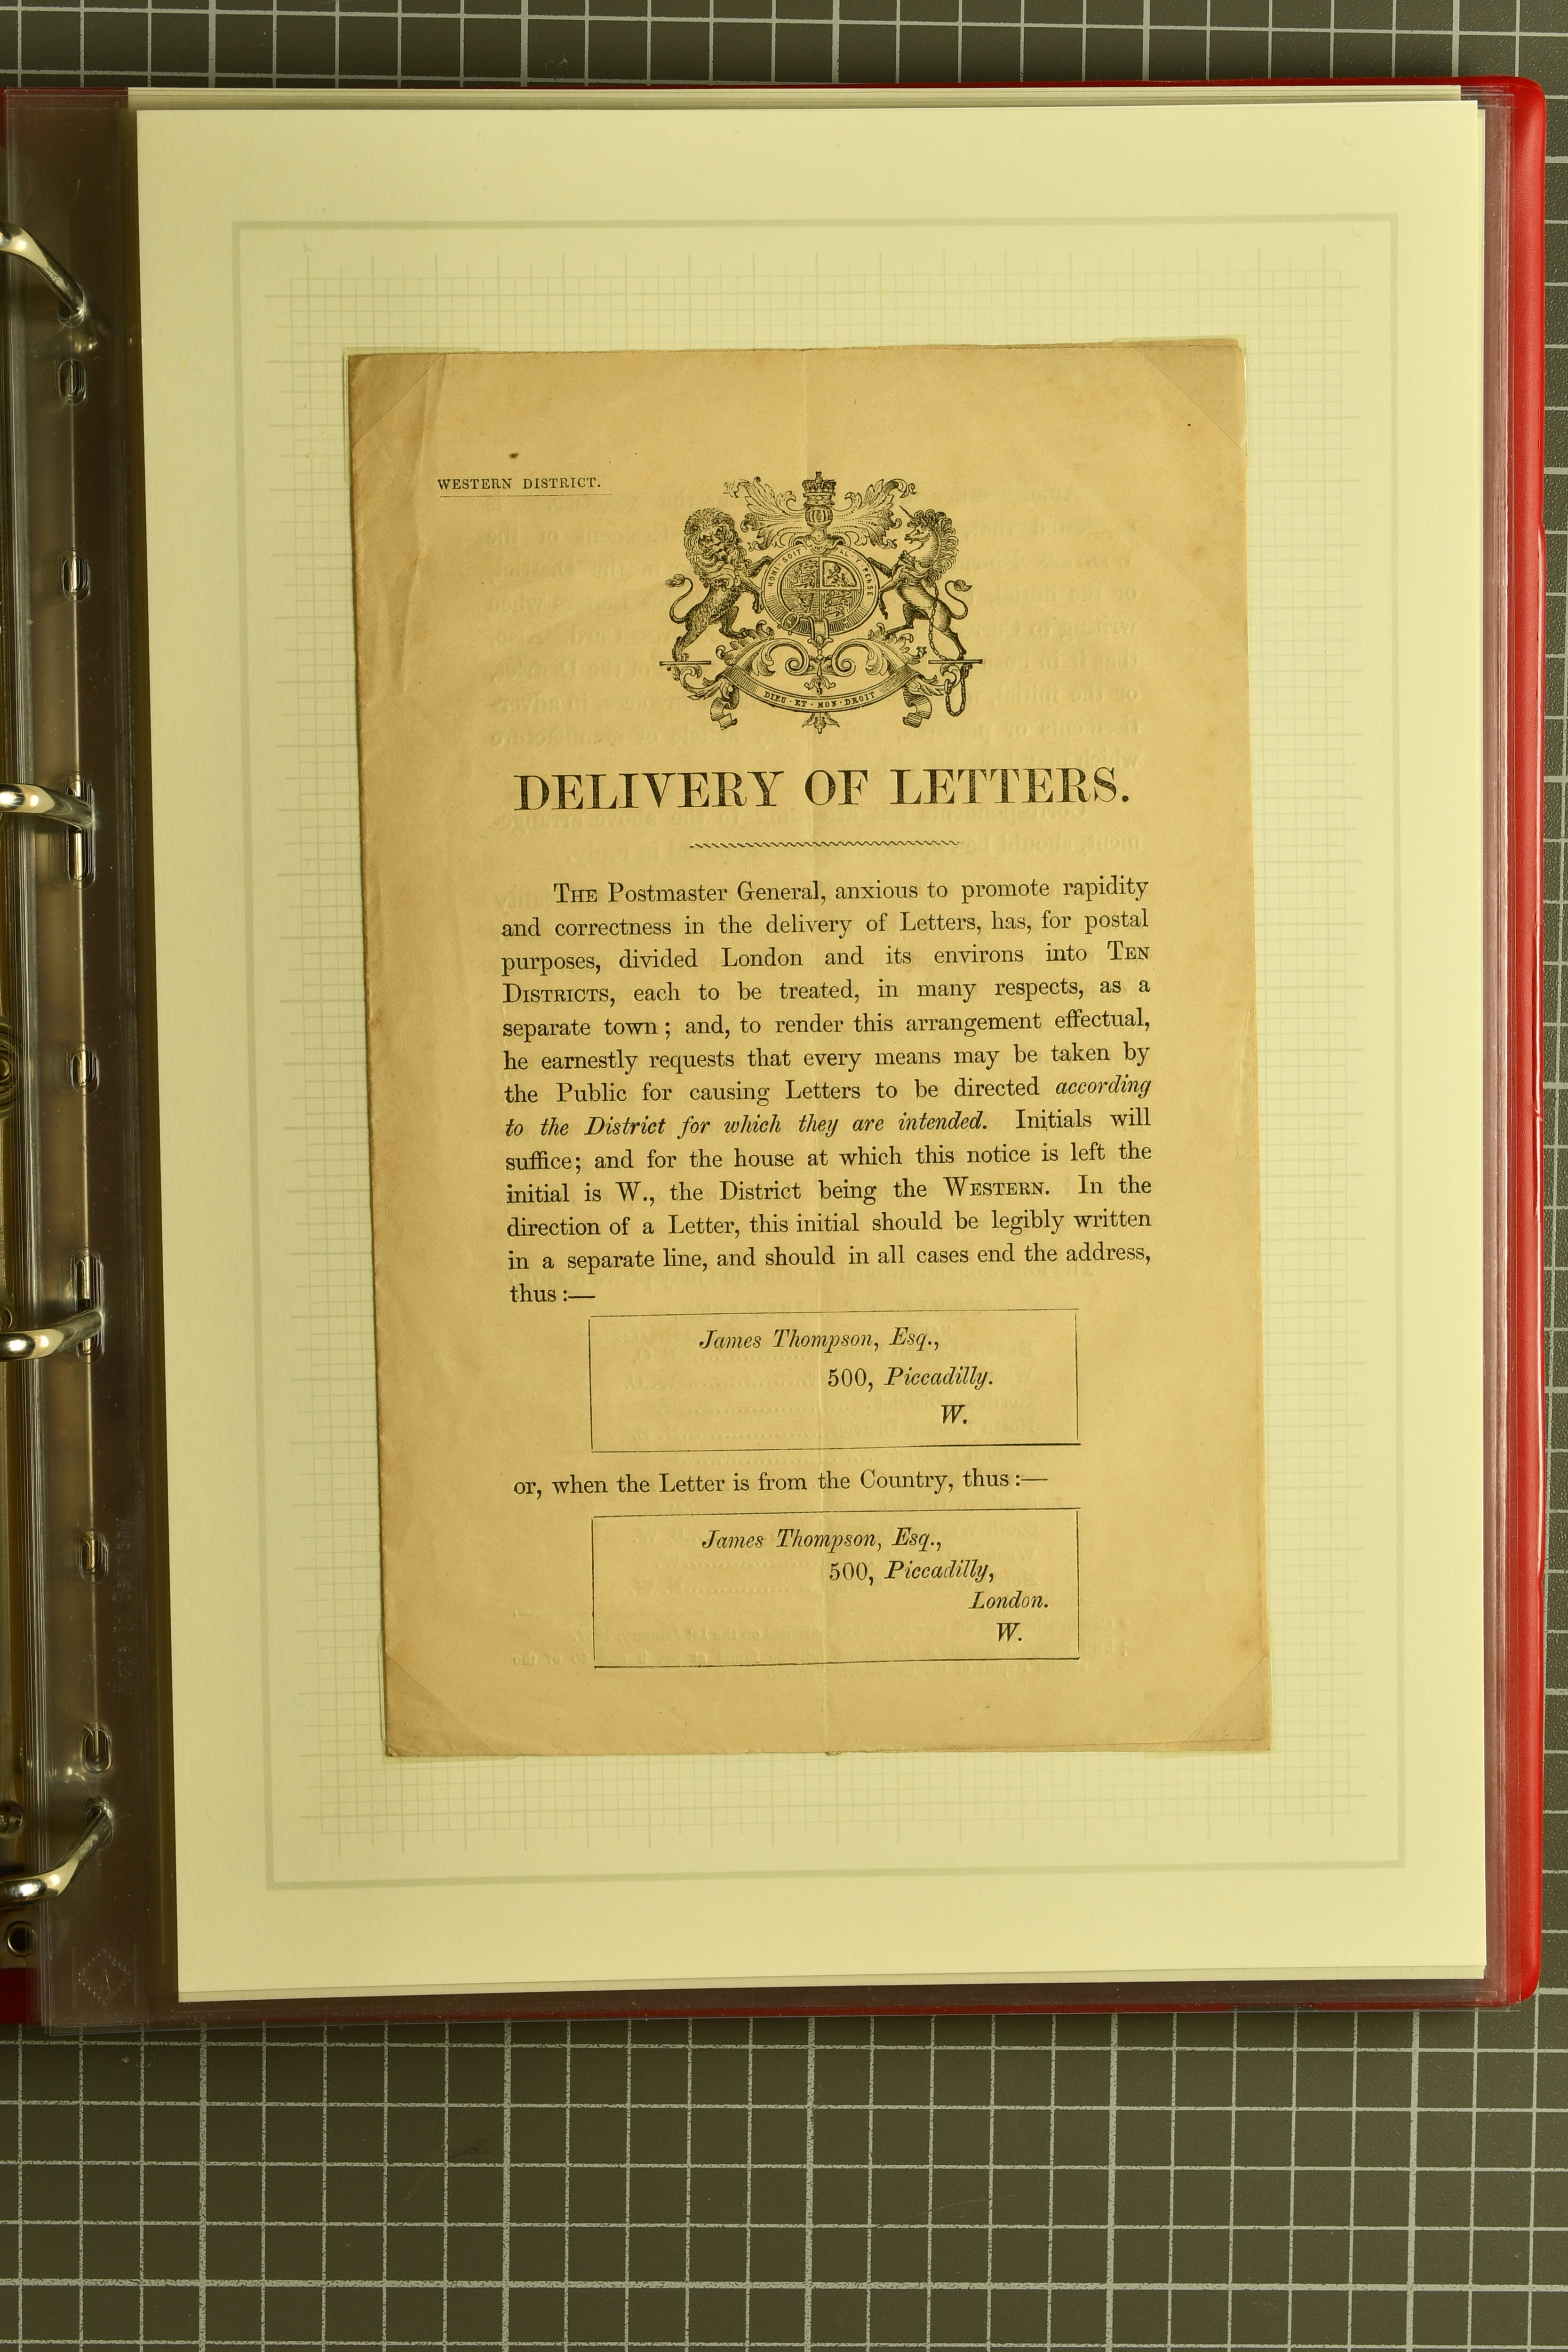 WESTERN DISTRICT.
HONI · SOIT · AL · Y · PENSE
DIEU · ET · MON · DROIT
DELIVERY OF LETTERS.
THE Postmaster General, anxious to promote rapidity
and correctness in the delivery of Letters, has, for postal
purposes, divided London and its environs into TEN
DISTRICTS, each to be treated, in many respects, as a
separate town; and, to render this arrangement effectual,
he earnestly requests that every means may be taken by
the Public for causing Letters to be directed according
to the District for which they are intended. Initials will
suffice; and for the house at which this notice is left the
initial is W., the District being the WESTERN. In the
direction of a Letter, this initial should be legibly written
in a separate line, and should in all cases end the address,
thus:—
James Thompson, Esq.,
500, Piccadilly.
W.
or, when the Letter is from the Country, thus:—
James Thompson, Esq.,
500, Piccadilly,
London.
W.